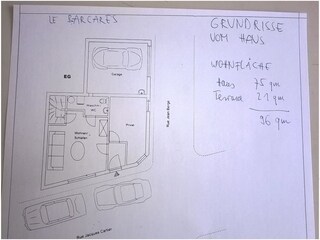 LE BARCARÈS
GRUNDRISSE
VOM HAUS
WOHNFLÄCHE
Haus 75 qm
Terrasse 21 qm
96 qm
EG
Garage
WC
Wohnen
Schlafen
Rue Jean Barge
Rue Jacques Cartier